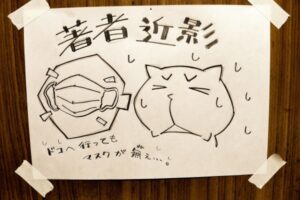 著者近影
ドコへ行っても
マスクが無え…。